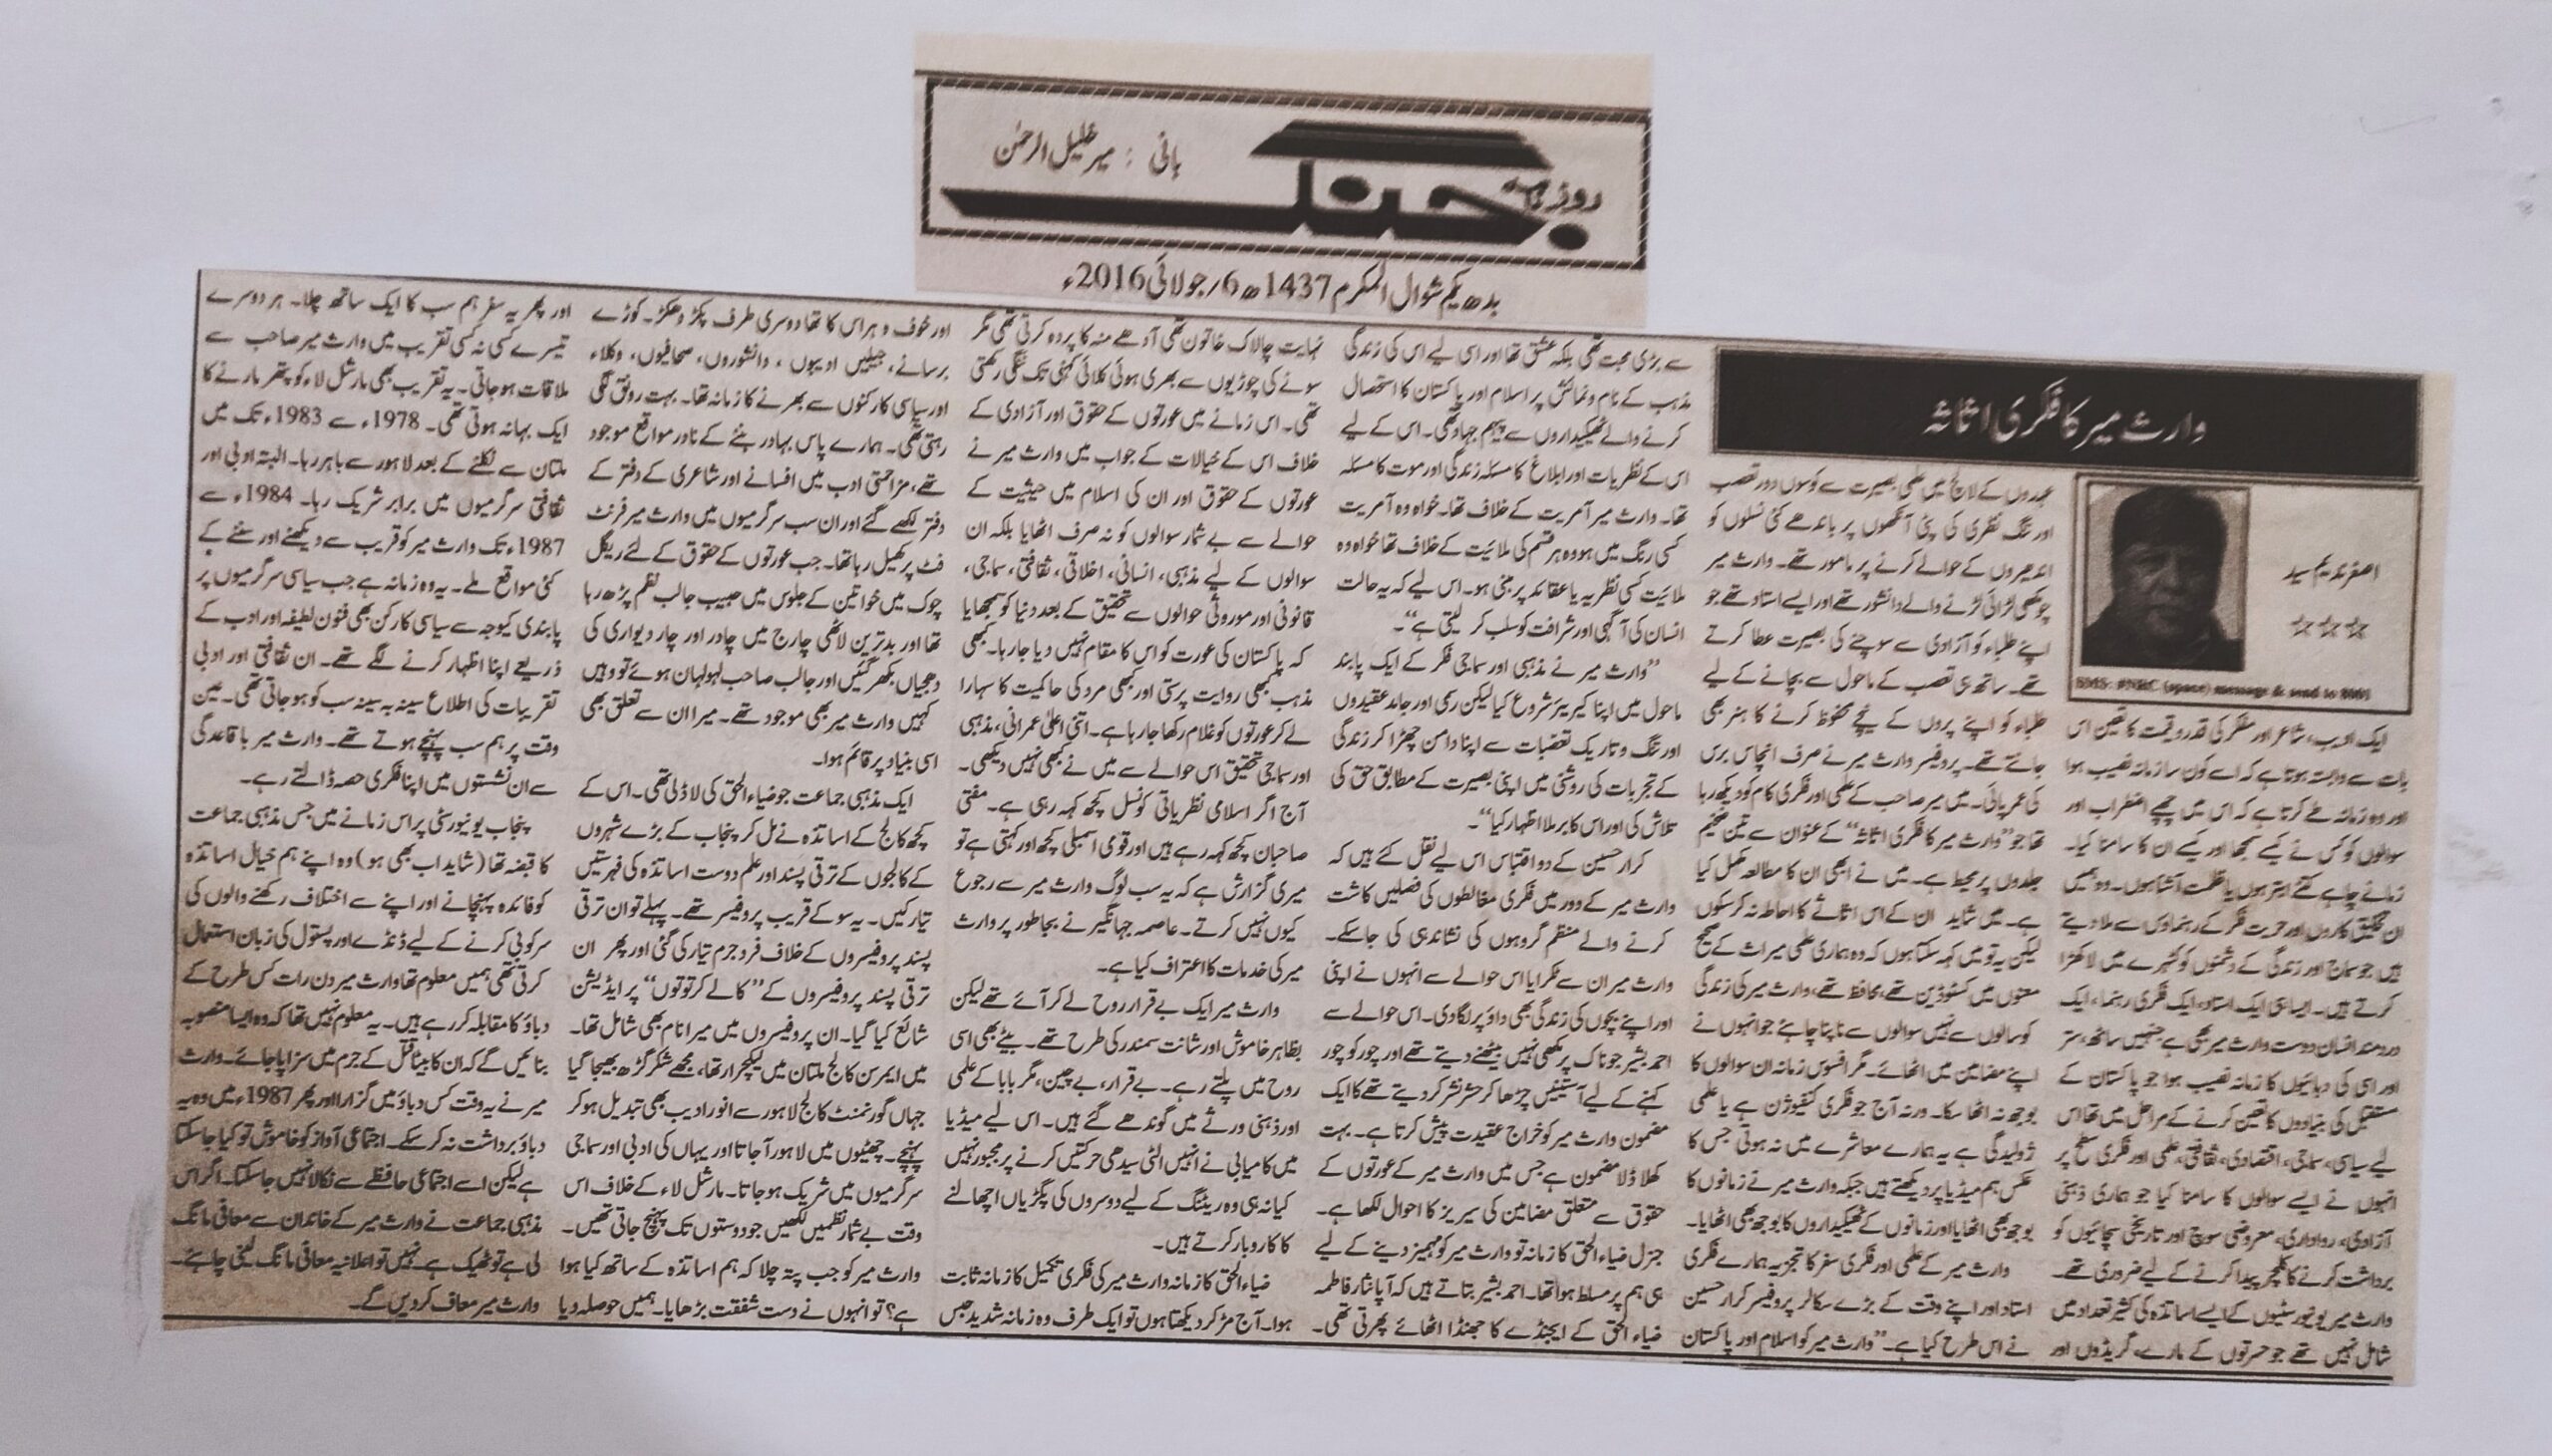 روزنامہ جنگ
بانی : میر خلیل الرحمٰن
بدھ یکم شوال المکرم 1437ھ 6/جولائی 2016ء
وارث میر کا فکری اثاثہ
اصغر ندیم سید
☆☆☆
SMS: #NRC (space) message & send to 8001
ایک ادیب، شاعر اور مفکر کی قدر و قیمت کا تعین اس
بات سے وابستہ ہوتا ہے کہ اسے کون سا زمانہ نصیب ہوا
اور وہ زمانہ طے کرتا ہے کہ اس میں چھپے اضطراب اور
سوالوں کو کس نے کیسے سمجھا اور کیسے ان کا سامنا کیا۔
زمانے چاہے کتنے ابتر ہوں یا ظلمت آشنا ہوں۔ وہ ہمیں
ان تخلیق کاروں اور حریت فکر کے رہنماؤں سے ملا دیتے
ہیں جو سماج اور زندگی کے دشمنوں کو کٹہرے میں لا کھڑا
کرتے ہیں۔ ایسا ہی ایک استاد، ایک فکری رہنما، ایک
دردمند انسان دوست وارث میر بھی ہے جنہیں ساٹھ، ستر
اور اسی کی دہائیوں کا زمانہ نصیب ہوا جو پاکستان کے
مستقبل کی بنیادوں کا تعین کرنے کے مراحل میں تھا اس
لیے سیاسی، سماجی، اقتصادی، ثقافتی، علمی اور فکری سطح پر
انہوں نے ایسے سوالوں کا سامنا کیا جو ہماری ذہنی
آزادی، رواداری، معروضی سوچ اور تاریخی سچائیوں کو
برداشت کرنے کا کلچر پیدا کرنے کے لیے ضروری تھے۔
وارث میر یونیورسٹیوں کے ایسے اساتذہ کی کثیر تعداد میں
شامل نہیں تھے جو حسرتوں کے مارے، گریڈوں اور
عہدوں کے لالچ میں علمی بصیرت سے کوسوں دور تعصب
اور تنگ نظری کی پٹی آنکھوں پر باندھے کئی نسلوں کو
اندھیروں کے حوالے کرنے پر مامور تھے۔ وارث میر
چومکھی لڑائی لڑنے والے دانشور تھے اور ایسے استاد تھے جو
اپنے طلباء کو آزادی سے سوچنے کی بصیرت عطا کرتے
تھے۔ ساتھ ہی تعصب کے ماحول سے بچانے کے لیے
طلباء کو اپنے پروں کے نیچے محفوظ کرنے کا ہنر بھی
جانتے تھے۔ پروفیسر وارث میر نے صرف انچاس برس
کی عمر پائی۔ میں میر صاحب کے علمی اور فکری کام کو دیکھ رہا
تھا جو ’’وارث میر کا فکری اثاثہ‘‘ کے عنوان سے تین ضخیم
جلدوں پر محیط ہے۔ میں نے ابھی ان کا مطالعہ مکمل کیا
ہے۔ میں شاید ان کے اس اثاثے کا احاطہ نہ کرسکوں
لیکن یہ تو میں کہہ سکتا ہوں کہ وہ ہماری علمی میراث کے صحیح
معنوں میں کسٹوڈین تھے، محافظ تھے، وارث میر کی زندگی
کو سالوں سے نہیں سوالوں سے ناپنا چاہئے جو انہوں نے
اپنے مضامین میں اٹھائے۔ مگر افسوس زمانہ ان سوالوں کا
بوجھ نہ اٹھا سکا۔ ورنہ آج جو فکری کنفیوژن ہے یا علمی
ژولیدگی ہے یہ ہمارے معاشرے میں نہ ہوتی جس کا
عکس ہم میڈیا پر دیکھتے ہیں جبکہ وارث میر نے زمانوں کا
بوجھ بھی اٹھایا اور زمانوں کے ٹھیکیداروں کا بوجھ بھی اٹھایا۔
وارث میر کے علمی اور فکری سفر کا تجزیہ ہمارے فکری
استاد اور اپنے وقت کے بڑے سکالر پروفیسر کرار حسین
نے اس طرح کیا ہے۔ ’’وارث میر کو اسلام اور پاکستان
سے بڑی محبت تھی بلکہ عشق تھا اور اسی لیے اس کی زندگی
مذہب کے نام و نمائش پر اسلام اور پاکستان کا استحصال
کرنے والے ٹھیکیداروں سے پیہم جہاد تھی۔ اس کے لیے
اس کے نظریات اور ابلاغ کا مسئلہ زندگی اور موت کا مسئلہ
تھا۔ وارث میر آمریت کے خلاف تھا۔ خواہ وہ آمریت
کسی رنگ میں ہو وہ ہر قسم کی ملائیت کے خلاف تھا خواہ وہ
ملائیت کسی نظریہ یا عقائد پر مبنی ہو۔ اس لیے کہ یہ حالت
انسان کی آگہی اور شرافت کو سلب کر لیتی ہے‘‘۔
’’وارث میر نے مذہبی اور سماجی فکر کے ایک پابند
ماحول میں اپنا کیریئر شروع کیا لیکن رسمی اور جامد عقیدوں
اور تنگ و تاریک تعصبات سے اپنا دامن چھڑا کر زندگی
کے تجربات کی روشنی میں اپنی بصیرت کے مطابق حق کی
تلاش کی اور اس کا برملا اظہار کیا‘‘۔
کرار حسین کے دو اقتباس اس لیے نقل کئے ہیں کہ
وارث میر کے دور میں فکری مغالطوں کی فصلیں کاشت
کرنے والے منظم گروہوں کی نشاندہی کی جاسکے۔
وارث میر ان سے ٹکرایا اس حوالے سے انہوں نے اپنی
اور اپنے بچوں کی زندگی بھی داؤ پر لگا دی۔ اس حوالے سے
احمد بشیر جو ناک پر مکھی نہیں بیٹھنے دیتے تھے اور چور کو چور
کہنے کے لیے آستینیں چڑھا کر حشر نشر کر دیتے تھے کا ایک
مضمون وارث میر کو خراج عقیدت پیش کرتا ہے۔ بہت
کھلا ڈلا مضمون ہے جس میں وارث میر کے عورتوں کے
حقوق سے متعلق مضامین کی سیریز کا احوال لکھا ہے۔
جنرل ضیاء الحق کا زمانہ تو وارث میر کو مہمیز دینے کے لیے
ہی ہم پر مسلط ہوا تھا۔ احمد بشیر بتاتے ہیں کہ آپا نثار فاطمہ
ضیاء الحق کے ایجنڈے کا جھنڈا اٹھائے پھرتی تھی۔
نہایت چالاک خاتون تھی آدھے منہ کا پردہ کرتی تھی مگر
سونے کی چوڑیوں سے بھری ہوئی کلائی کہنی تک ننگی رکھتی
تھی۔ اس زمانے میں عورتوں کے حقوق اور آزادی کے
خلاف اس کے خیالات کے جواب میں وارث میر نے
عورتوں کے حقوق اور ان کی اسلام میں حیثیت کے
حوالے سے بے شمار سوالوں کو نہ صرف اٹھایا بلکہ ان
سوالوں کے لیے مذہبی، انسانی، اخلاقی، ثقافتی، سماجی،
قانونی اور موروثی حوالوں سے تحقیق کے بعد دنیا کو سمجھایا
کہ پاکستان کی عورت کو اس کا مقام نہیں دیا جا رہا۔ کبھی
مذہب کبھی روایت پرستی اور کبھی مرد کی حاکمیت کا سہارا
لے کر عورتوں کو غلام رکھا جا رہا ہے۔ اتنی اعلیٰ عمرانی، مذہبی
اور سماجی تحقیق اس حوالے سے میں نے کبھی نہیں دیکھی۔
آج اگر اسلامی نظریاتی کونسل کچھ کہہ رہی ہے۔ مفتی
صاحبان کچھ کہہ رہے ہیں اور قومی اسمبلی کچھ اور کہتی ہے تو
میری گزارش ہے کہ یہ سب لوگ وارث میر سے رجوع
کیوں نہیں کرتے۔ عاصمہ جہانگیر نے بجا طور پر وارث
میر کی خدمات کا اعتراف کیا ہے۔
وارث میر ایک بے قرار روح لے کر آئے تھے لیکن
بظاہر خاموش اور شانت سمندر کی طرح تھے۔ بیٹے بھی اسی
روح میں پلتے رہے۔ بے قرار، بے چین، مگر بابا کے علمی
اور ذہنی ورثے میں گوندھے گئے ہیں۔ اس لیے میڈیا
میں کامیابی نے انہیں الٹی سیدھی حرکتیں کرنے پر مجبور نہیں
کیا نہ ہی وہ ریٹنگ کے لیے دوسروں کی پگڑیاں اچھالنے
کا کاروبار کرتے ہیں۔
ضیاء الحق کا زمانہ وارث میر کی فکری تکمیل کا زمانہ ثابت
ہوا۔ آج مڑ کر دیکھتا ہوں تو ایک طرف وہ زمانہ شدید حبس
اور خوف و ہراس کا تھا دوسری طرف پکڑ دھکڑ۔ کوڑے
برسانے، جیلیں ادیبوں، دانشوروں، صحافیوں، وکلاء
اور سیاسی کارکنوں سے بھرنے کا زمانہ تھا۔ بہت رونق لگی
رہتی تھی۔ ہمارے پاس بہادر بننے کے نادر مواقع موجود
تھے، مزاحمتی ادب میں افسانے اور شاعری کے دفتر کے
دفتر لکھے گئے اور ان سب سرگرمیوں میں وارث میر فرنٹ
فٹ پر کھیل رہا تھا۔ جب عورتوں کے حقوق کے لئے ریگل
چوک میں خواتین کے جلوس میں حبیب جالب نظم پڑھ رہا
تھا اور بدترین لاٹھی چارج میں چادر اور چار دیواری کی
دھجیاں بکھر گئیں اور جالب صاحب لہولہان ہوئے تو وہیں
کہیں وارث میر بھی موجود تھے۔ میرا ان سے تعلق بھی
اسی بنیاد پر قائم ہوا۔
ایک مذہبی جماعت جو ضیاء الحق کی لاڈلی تھی۔ اس کے
کچھ کالج کے اساتذہ نے مل کر پنجاب کے بڑے شہروں
کے کالجوں کے ترقی پسند اور علم دوست اساتذہ کی فہرستیں
تیار کیں۔ یہ سو کے قریب پروفیسر تھے۔ پہلے تو ان ترقی
پسند پروفیسروں کے خلاف فرد جرم تیار کی گئی اور پھر ان
ترقی پسند پروفیسروں کے ’’کالے کرتوتوں‘‘ پر ایڈیشن
شائع کیا گیا۔ ان پروفیسروں میں میرا نام بھی شامل تھا۔
میں ایمرسن کالج ملتان میں لیکچرار تھا، مجھے شکرگڑھ بھیجا گیا
جہاں گورنمنٹ کالج لاہور سے انور ادیب بھی تبدیل ہو کر
پہنچے۔ چھٹیوں میں لاہور آ جاتا اور یہاں کی ادبی اور سماجی
سرگرمیوں میں شریک ہو جاتا۔ مارشل لاء کے خلاف اس
وقت بے شمار نظمیں لکھیں جو دوستوں تک پہنچ جاتی تھیں۔
وارث میر کو جب پتہ چلا کہ ہم اساتذہ کے ساتھ کیا ہوا
ہے؟ تو انہوں نے دست شفقت بڑھایا۔ ہمیں حوصلہ دیا
اور پھر یہ سفر ہم سب کا ایک ساتھ چلا۔ ہر دوسرے
تیسرے کسی نہ کسی تقریب میں وارث میر صاحب سے
ملاقات ہو جاتی۔ یہ تقریب بھی مارشل لاء کو پتھر مارنے کا
ایک بہانہ ہوتی تھی۔ 1978ء سے 1983ء تک میں
ملتان سے نکلنے کے بعد لاہور سے باہر رہا۔ البتہ ادبی اور
ثقافتی سرگرمیوں میں برابر شریک رہا۔ 1984ء سے
1987ء تک وارث میر کو قریب سے دیکھنے اور سننے کے
کئی مواقع ملے۔ یہ وہ زمانہ ہے جب سیاسی سرگرمیوں پر
پابندی کیوجہ سے سیاسی کارکن بھی فنون لطیفہ اور ادب کے
ذریعے اپنا اظہار کرنے لگے تھے۔ ان ثقافتی اور ادبی
تقریبات کی اطلاع سینہ بہ سینہ سب کو ہو جاتی تھی۔ عین
وقت پر ہم سب پہنچے ہوتے تھے۔ وارث میر باقاعدگی
سے ان نشستوں میں اپنا فکری حصہ ڈالتے رہے۔
پنجاب یونیورسٹی پر اس زمانے میں جس مذہبی جماعت
کا قبضہ تھا (شاید اب بھی ہو) وہ اپنے ہم خیال اساتذہ
کو فائدہ پہنچانے اور اپنے سے اختلاف رکھنے والوں کی
سرکوبی کرنے کے لیے ڈنڈے اور پستول کی زبان استعمال
کرتی تھی ہمیں معلوم تھا وارث میر دن رات کس طرح کے
دباؤ کا مقابلہ کر رہے ہیں۔ یہ معلوم نہیں تھا کہ وہ ایسا منصوبہ
بنائیں گے کہ ان کا بیٹا قتل کے جرم میں سزا پا جائے۔ وارث
میر نے یہ وقت کس دباؤ میں گزارا اور پھر 1987ء میں وہ یہ
دباؤ برداشت نہ کر سکے۔ اجتماعی آواز کو خاموش تو کیا جا سکتا
ہے لیکن اسے اجتماعی حافظے سے نکالا نہیں جا سکتا۔ اگر اس
مذہبی جماعت نے وارث میر کے خاندان سے معافی مانگ
لی ہے تو ٹھیک ہے نہیں تو اعلانیہ معافی مانگ لینی چاہئے۔
وارث میر معاف کر دیں گے۔